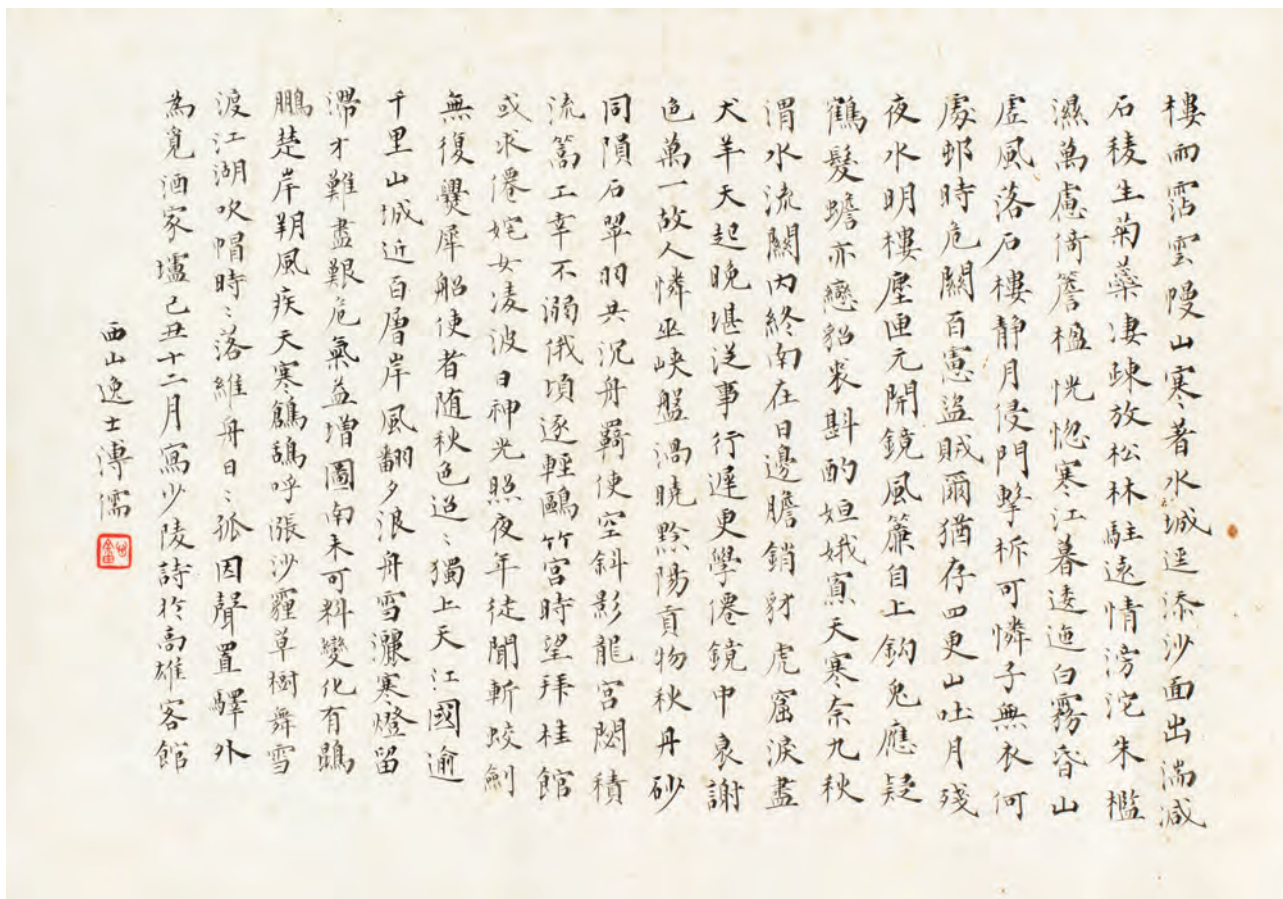 樓雨霑雲幔山寒著水城逕添沙面出湍減
石稜生菊蘂凄疎放松林駐遠情滂沱朱檻
濕萬慮倚簷楹恍惚寒江暮逶迤白霧昏山
虛風落石樓靜月侵門擊柝可憐子無衣何
處邨時危關百慮盜賊爾猶存四更山吐月殘
夜水明樓塵匣元開鏡風簾自上鈎兔應疑
鶴髮蟾亦戀貂裘斟酌姮娥寡天寒奈九秋
渭水流關內終南在日邊膽銷豺虎窟淚盡
犬羊天起晚堪從事行遲更學僊鏡中衰謝
色萬一故人憐巫峽盤渦曉黔陽貢物秋丹砂
同隕石翠羽共沉舟羇使空斜影龍宮閟積
流篙工幸不溺俄頃逐輕鷗竹宮時望拜桂館
或求僊姹女凌波日神光照夜年徒聞斬蛟劍
無復爨犀船使者随秋色迢〻獨上天江國逾
千里山城近百層岸風翻夕浪舟雪灑寒燈留
滯才難盡艱危氣益增圖南未可料變化有鵾
鵬楚岸朔風疾天寒鶬鴰呼漲沙霾草樹舞雪
渡江湖吹帽時〻落維舟日〻孤因聲置驛外
為覓酒家壚己丑十二月寫少陵詩於高雄客館
西山逸士溥儒
心畬